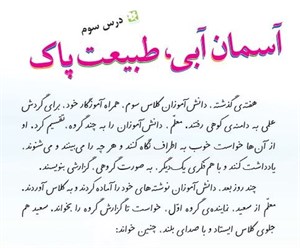 درس سوم
آسمان آبی، طبیعت پاک
هفته‌ی گذشته، دانش‌آموزان کلاس سوم، همراه آموزگار خود، برای گردش
علی به دامنه‌ی کوهی رفتند. معلّم، دانش‌آموزان را به چند گروه، تقسیم کرد. او
از آن‌ها خواست خوب به اطراف نگاه کنند و هر چه را می‌بینند و می‌شنوند،
یادداشت کنند و با هم فکری یک‌دیگر، به صورت گروهی، گزارش بنویسند.
چند روز بعد، دانش‌آموزان نوشته‌های خود را آماده کردند و به کلاس آوردند.
معلّم از سعید، نماینده‌ی گروه اوّل، خواست تا گزارش گروه را بخواند. سعید هم
جلوی کلاس ایستاد و با صدای بلند، چنین خواند: